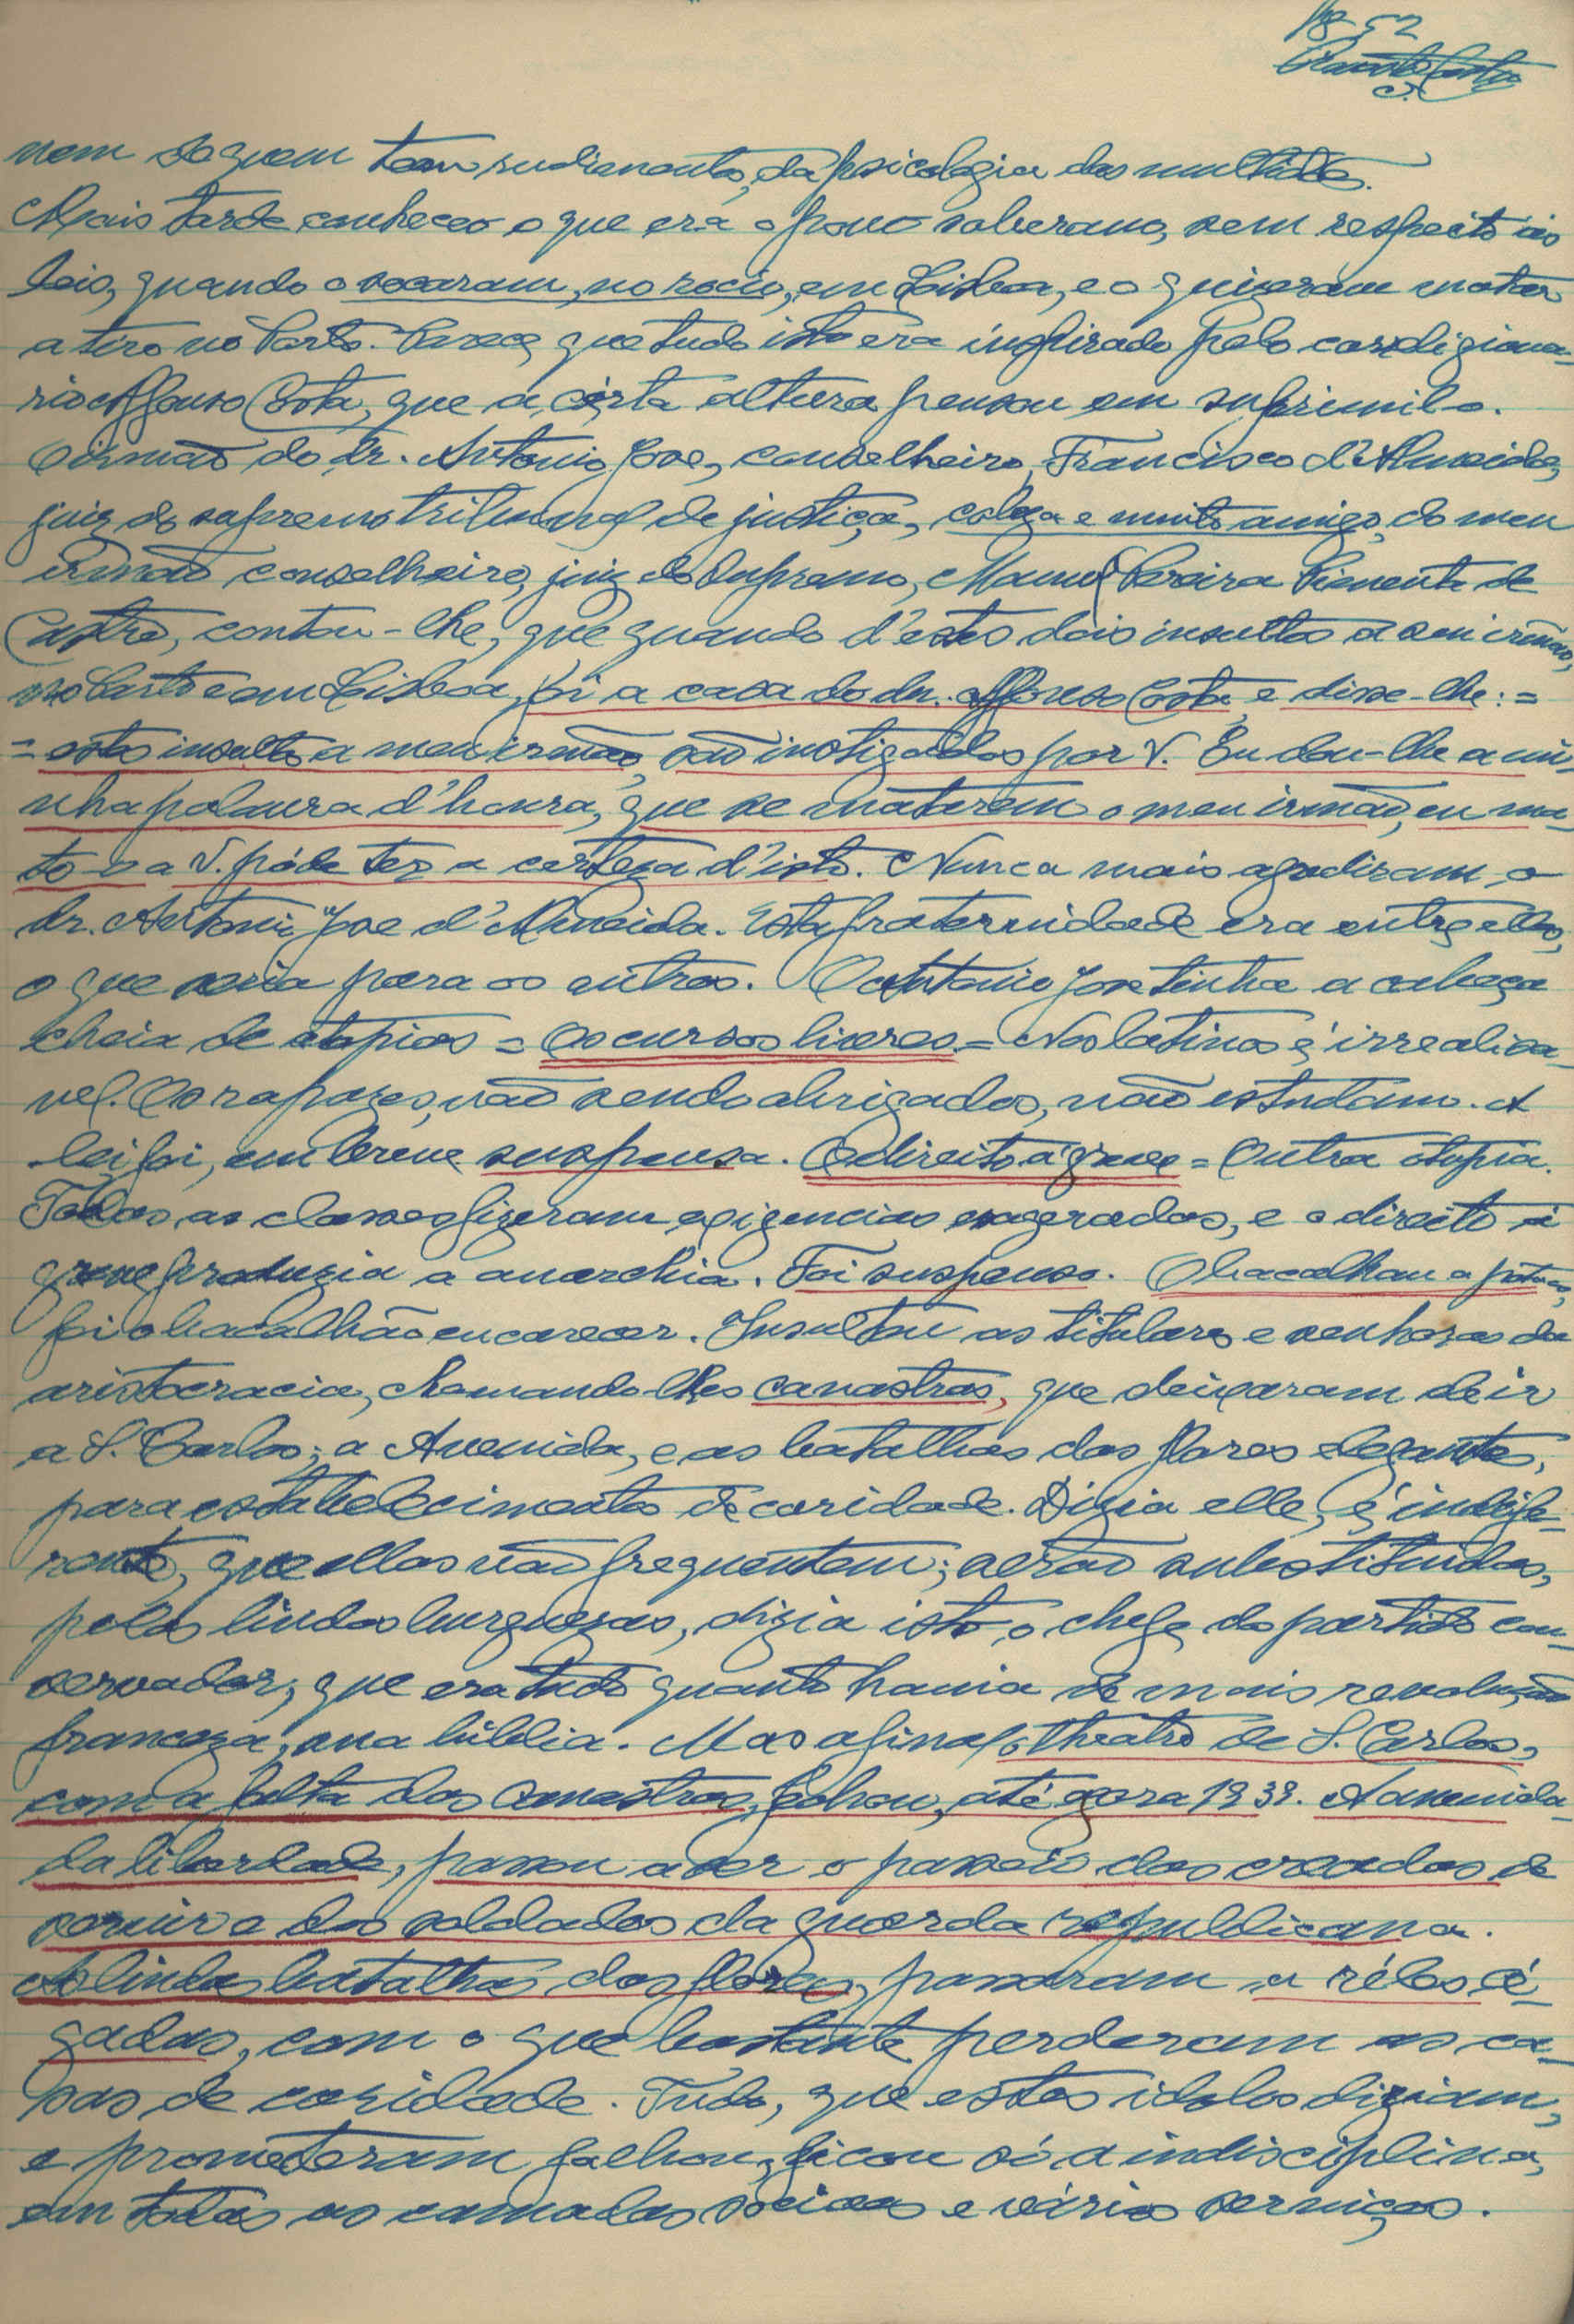 Pg 52
nem de quem tem rudimentos, da psicologia das multidões.
Mais tarde conheceo o que era o povo soberano, sem respeito ás
leis, quando o socaram, no rocio, em Lisboa, e o quizeram matar
a tiro no Porto. Parece, que tudo isto era inspirado pelo correligiona-
rio Affonso Costa, que a cérta altura pensou em suprimil-o.
O irmão do dr. Antonio Jose, conselheiro, Francisco d'Almeida,
juiz do supremo tribunal de justiça, colega e muito amigo, do meu
irmão conselheiro, juiz do Supremo, Manuel Pereira Pimenta de
Castro, contou-lhe, que quando d'estes dois insultos a seu irmão,
no Porto e em Lisboa, foi a casa do dr. Affonso Costa, e disse-lhe: =
= estes insultos a meu irmão, são instigados por V. Eu dou-lhe a mi-
nha palavra d'honra, que se matarem o meu irmão, eu ma-
to-o a V. póde ter a certeza d'isto. Nunca mais agrediram, o
dr. Antonio Jose d'Almeida. Esta fraternidade era entre elles,
o que seria para os outros. O Antonio Jose tinha a cabeça
cheia de utopias = Os cursos livres = Nos latinos é irrealisa-
vel. Os rapazes, não sendo obrigados, não estudam. A
lei foi, em breve suspensa. O direito á greve = Outra utopia.
Todas, as classes fizeram exigencias exageradas, e o direito á
greve produzia a anarchia. Foi suspenso. O bacalhau a pataco,
foi o bacalhão encarecer. Insultou as titulares e senhoras da
aristocracia, chamando-lhes canastras, que deixaram de ir
a S. Carlos; a Avenida, e as batalhas das flores elegantes,
para estabelecimentos de caridade. Dizia elle, é indife-
rente, que ellas não frequentem; serão substituidas,
pelas lindas burguezas, dizia isto, o chefe do partido con-
servador, que era tudo quanto havia de mais revolução
franceza, sua biblia. Mas afinal, o theatro de S. Carlos,
com a falta das canastras, fechou, até agora 1939. A avenida
da liberdade, passou a ser o passeio das creadas de
servir e dos soldados da guarda republicana.
As lindas batalhas das flores, passaram a réles cé-
gadas, com o que bastante perderam as ca-
sas de caridade. Tudo, que estes idolos diziam,
e prometeram falhou, ficou só a indisciplina,
em todas as camadas sociaes e vários serviços.